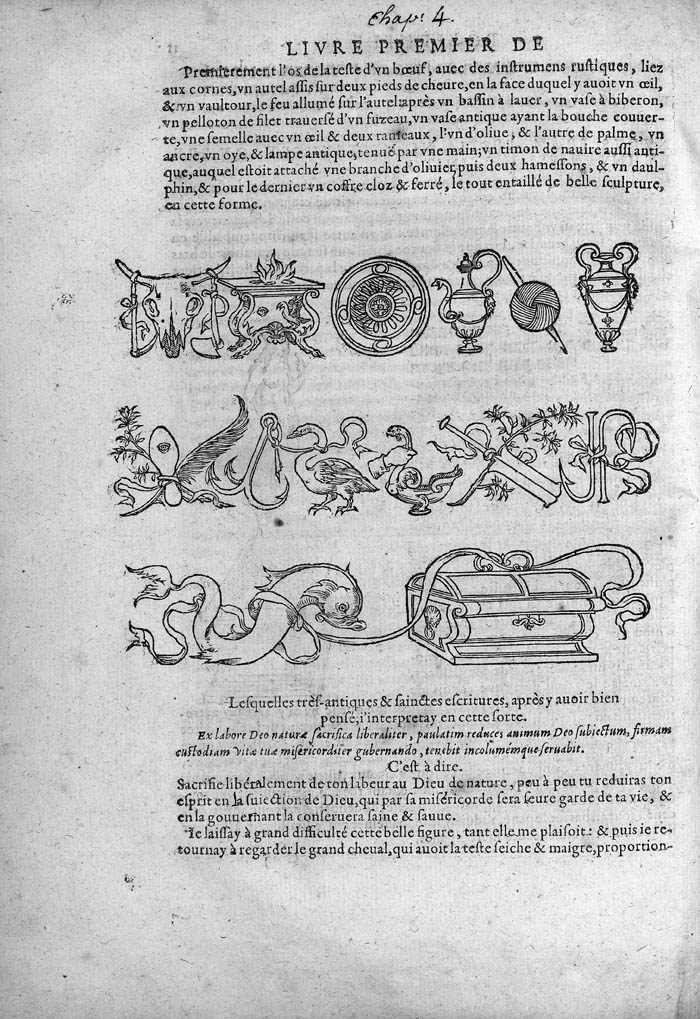 Chap. 4.
LIVRE PREMIER DE
Premierement l'os de la teste d'vn bœuf, auec des instrumens rustiques, liez
aux cornes, vn autel assis sur deux pieds de cheure, en la face duquel y auoit vn œil,
& vn vaultour, le feu allumé sur l'autel: après vn bassin à lauer, vn vase à biberon,
vn pelloton de filet trauersé d'vn fuzeau, vn vase antique ayant la bouche couuer-
te, vne semelle auec vn œil & deux rameaux, l'vn d'oliue, & l'autre de palme, vn
ancre, vn oye, & lampe antique, tenuë par vne main; vn timon de nauire aussi anti-
que, auquel estoit attaché vne branche d'oliuier, puis deux hamessons, & vn daul-
phin, & pour le dernier vn coffre cloz & ferré, le tout entaillé de belle sculpture,
en cette forme.
Lesquelles très-antiques & sainctes escritures, après y auoir bien
pensé, i'interpretay en cette sorte.
Ex labore Deo naturæ sacrifica liberaliter, paulatim reduces animum Deo subiectum, firmam
custodiam vitæ tuæ misericorditer gubernando, tenebit incolumémque seruabit.
C'est à dire.
Sacrifie libéralement de ton labeur au Dieu de nature, peu à peu tu reduiras ton
esprit en la suiection de Dieu, qui par sa miséricorde sera seure garde de ta vie, &
en la gouuernant la conseruera saine & sauue.
Ie laissay à grand difficulté cette belle figure, tant elle me plaisoit: & puis ie re-
tournay à regarder le grand cheual, qui auoit la teste seiche & maigre, proportion-